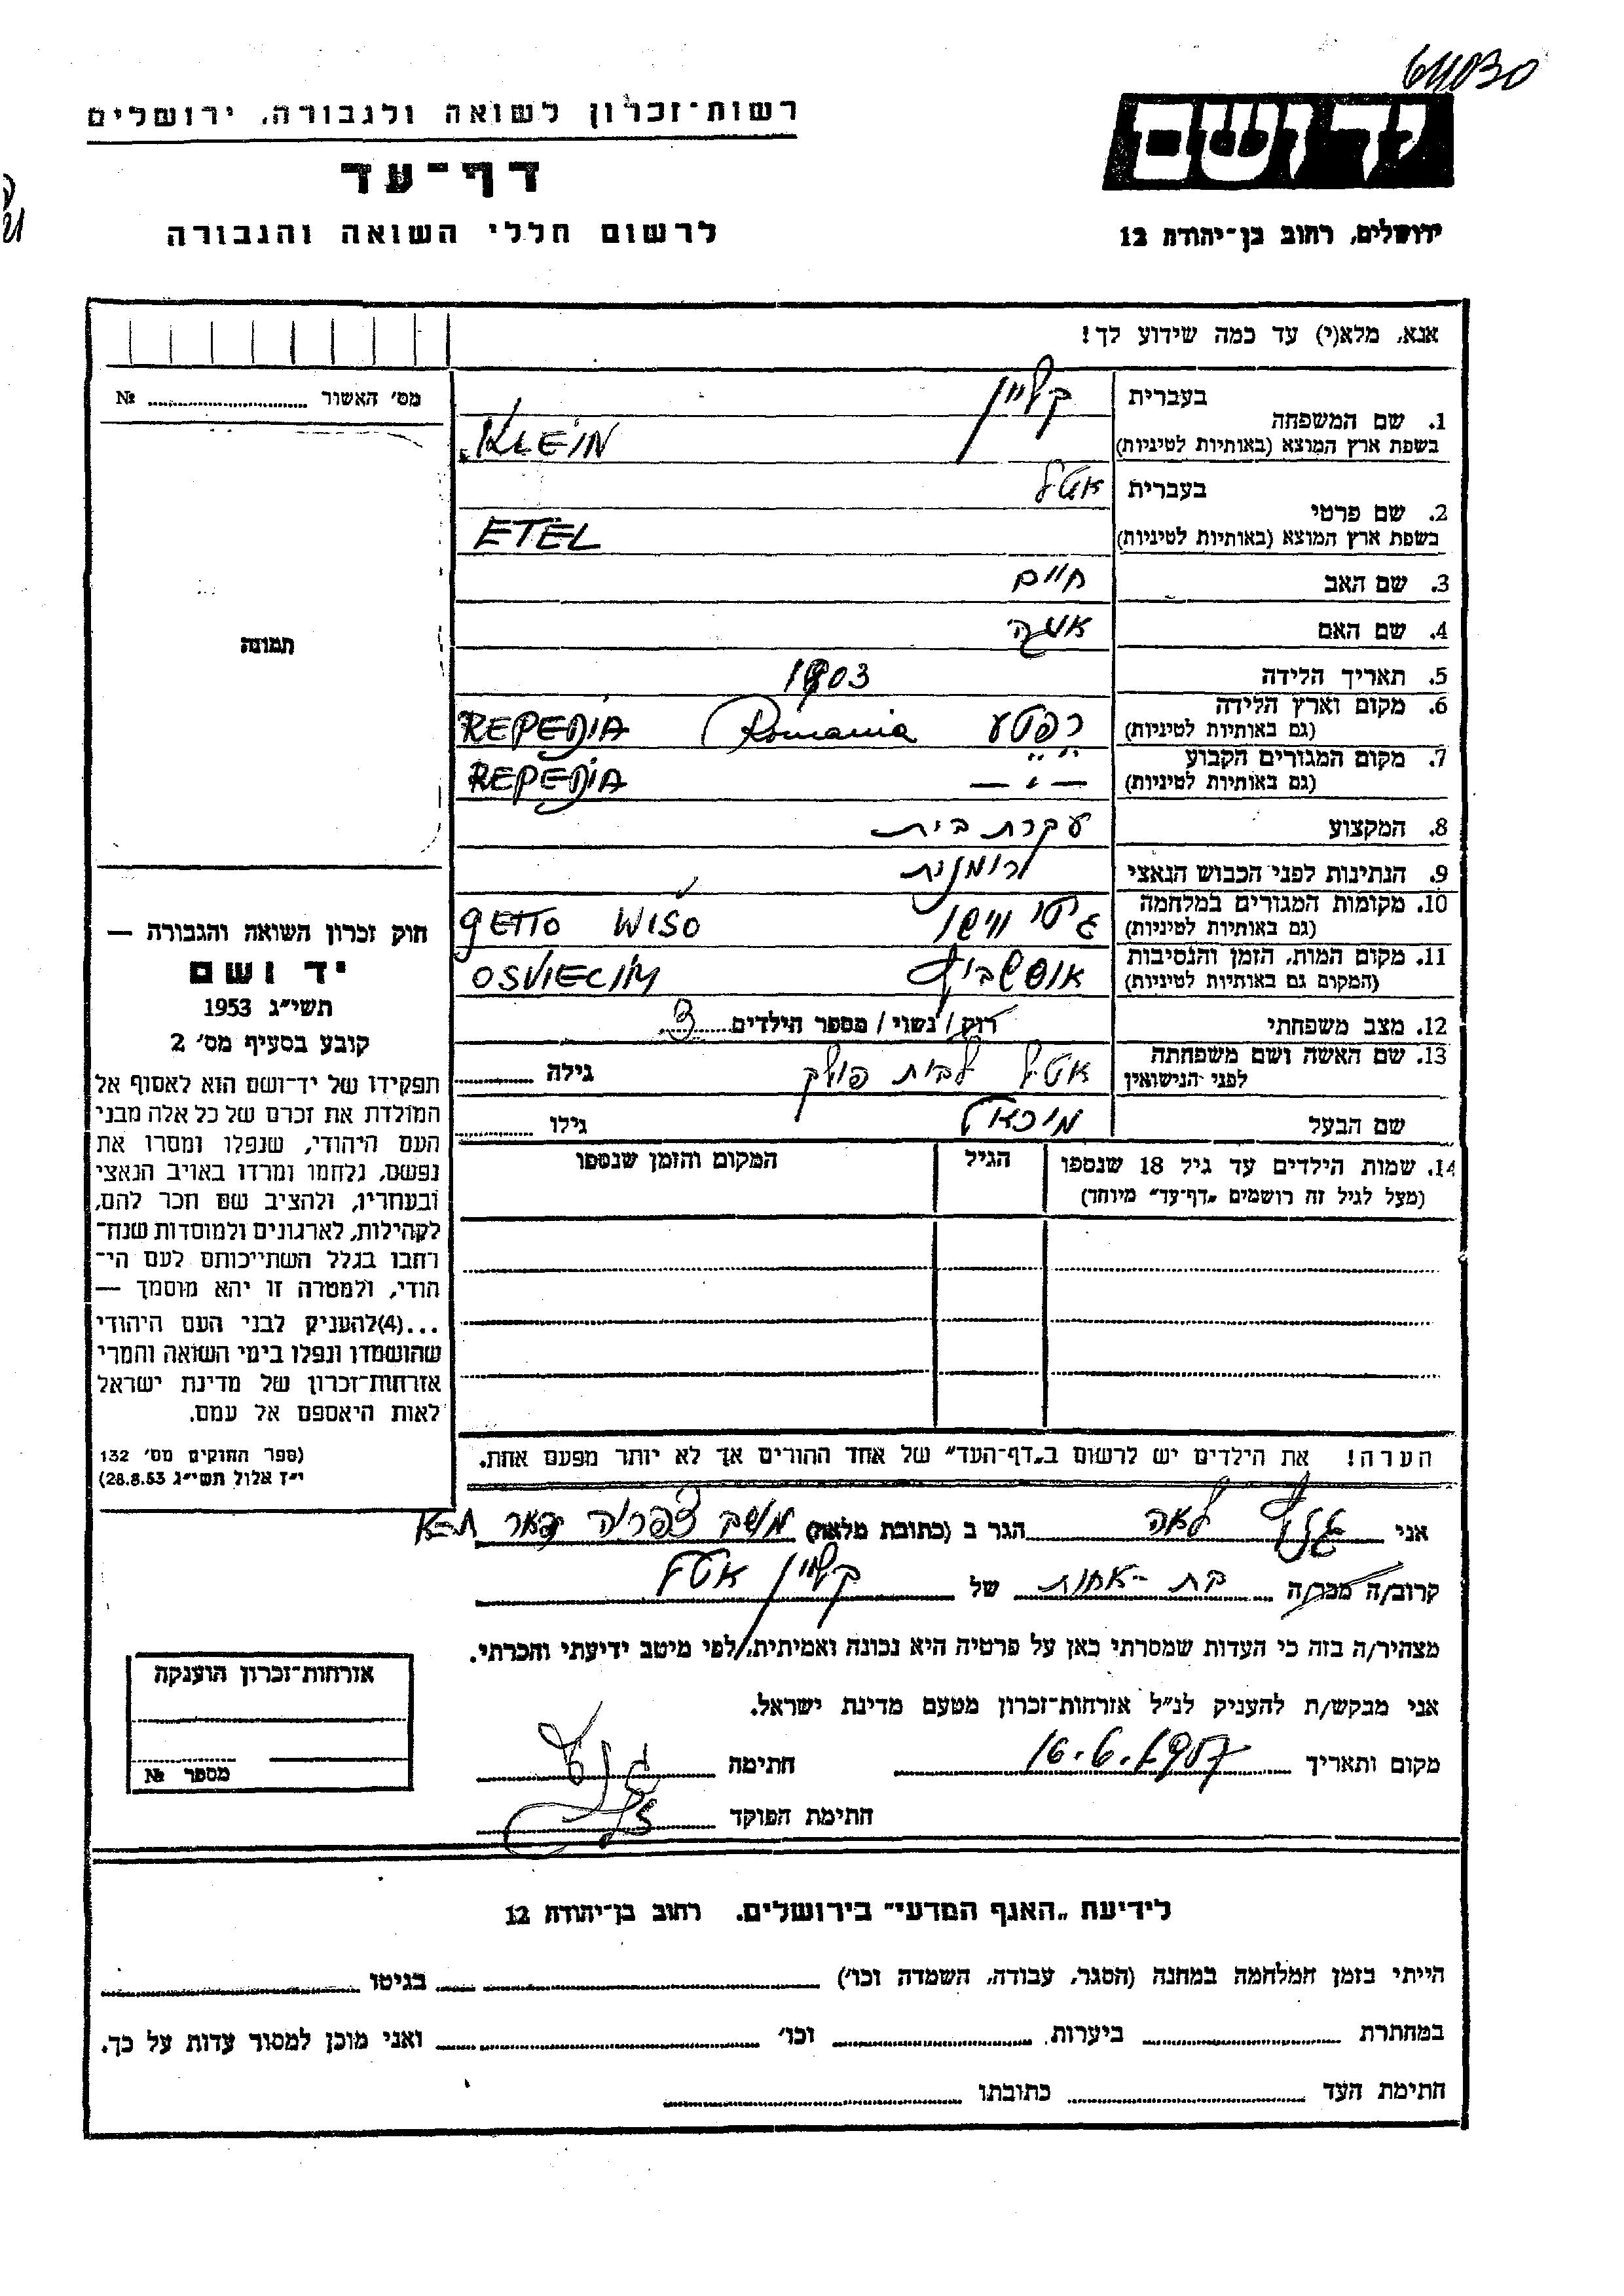 64030
רשות-זכרון לשואה ולגבורה, ירושלים
יד ושם
דף-עד
לרשום חללי השואה והגבורה
ירושלים, רחוב בן-יהודה 12
אנא, מלא(י) עד כמה שידוע לך!
מס׳ האשור № 
1. שם המשפחה
בעברית קליין
בשפת ארץ המוצא (באותיות לטיניות) KLEIN
2. שם פרטי
בעברית אטל
בשפת ארץ המוצא (באותיות לטיניות) ETEL
3. שם האב חיים
4. שם האם
5. תאריך הלידה 1903
6. מקום וארץ הלידה Romania REPEDIA
(גם באותיות לטיניות)
7. מקום המגורים הקבוע
(גם באותיות לטיניות) — " — REPEDIA
8. המקצוע עקרת בית
9. הנתינות לפני הכבוש הנאצי רומנית
10. מקומות המגורים במלחמה גיטו ווישו GETTO WISO
(גם באותיות לטיניות)
11. מקום המות, הזמן והנסיבות אושביץ OSVIECIM
(המקום גם באותיות לטיניות)
12. מצב משפחתי רוק/נשוי/מספר הילדים 3
13. שם האשה ושם משפחתה
לפני הנישואין אטל לבית פולק גילה
שם הבעל מיכאל גילו
14. שמות הילדים עד גיל 18 שנספו
(מעל לגיל זה רושמים „דף-עד״ מיוחד)
הגיל
המקום והזמן שנספו
תמונה
חוק זכרון השואה והגבורה —
יד ושם
תשי״ג 1953
קובע בסעיף מס׳ 2
תפקידו של יד-ושם הוא לאסוף אל
המולדת את זכרם של כל אלה מבני
העם היהודי, שנפלו ומסרו את
נפשם, נלחמו ומרדו באויב הנאצי
ובעוזריו, ולהציב שם וזכר להם,
לקהילות, לארגונים ולמוסדות שנח-
רבו בגלל השתייכותם לעם הי-
הודי, ולמטרה זו יהא מוסמך —
...(4) להעניק לבני העם היהודי
שהושמדו ונפלו בימי השואה והמרי
אזרחות-זכרון של מדינת ישראל
לאות היאספם אל עמם.
(ספר החוקים מס׳ 132
י״ז אלול תשי״ג 28.8.53)
הערה! את הילדים יש לרשום ב„דף-העד״ של אחד ההורים אך לא יותר מפעם אחת.
אני לאה הגר ב (כתובת מלאה) מושב צפריה
קרוב/ה מכר/ה בת-אחות של קליין אטל
מצהיר/ה בזה כי העדות שמסרתי כאן על פרטיה היא נכונה ואמיתית, לפי מיטב ידיעתי והכרתי.
אני מבקש/ת להעניק לנ״ל אזרחות-זכרון מטעם מדינת ישראל.
מקום ותאריך 16.6.1957 חתימה
חתימת הפוקד
אזרחות-זכרון הוענקה
מספר №
לידיעת „האגף המדעי״ בירושלים. רחוב בן-יהודה 12
הייתי בזמן המלחמה במחנה (הסגר, עבודה, השמדה וכו׳) בגיטו
במחתרת ביערות וכו׳ ואני מוכן למסור עדות על כך.
חתימת העד כתובתו